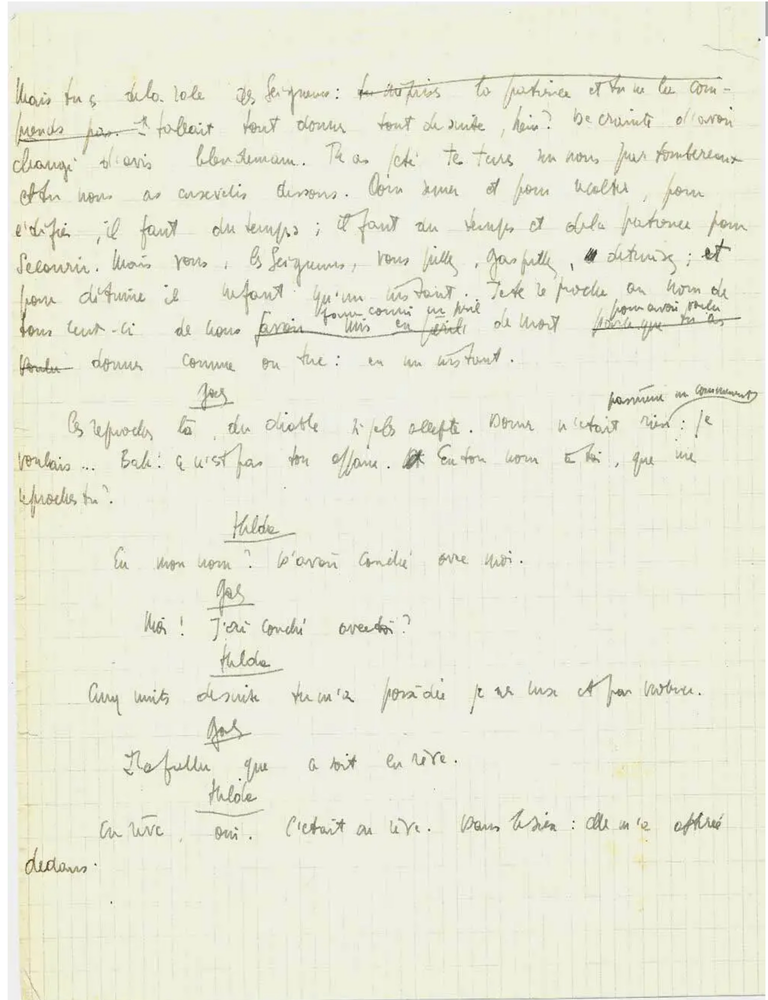 Mais tu es de la race des Seigneurs : tu méprises la patience et tu ne la com-
prends pas. Il fallait tout donner tout de suite, hein ? De crainte d'avoir
changé d'avis le lendemain. Tu as jeté tes terres sur nous par tombereaux
et tu nous as ensevelis dessous. Pour semer et pour récolter, pour
édifier, il faut du temps ; il faut du temps et de la patience pour
secourir. Mais vous, les Seigneurs, vous pillez, gaspillez, détruisez ; et
pour détruire il ne faut qu'un instant. Je te reproche au nom de
fait courir un péril pour avoir voulu
tous ceux-ci de nous avoir mis en péril de mort parce que tu as
voulu donner comme on tue : en un instant.
Goetz
pas même un commencement
Ces reproches là, du diable si je les accepte. Donner n'était rien : je
voulais... Bah ! ça n'est pas ton affaire. En ton nom à toi, que me
reproches-tu ?
Hilda
En mon nom ? D'avoir couché avec moi.
Goetz
Moi ! J'ai couché avec toi ?
Hilda
Cinq nuits de suite tu m'as possédée par ruse et par violence.
Goetz
Il a fallu que ce soit en rêve.
Hilda
En rêve, oui. C'était en rêve. Dans le sien : elle m'a attirée
dedans.